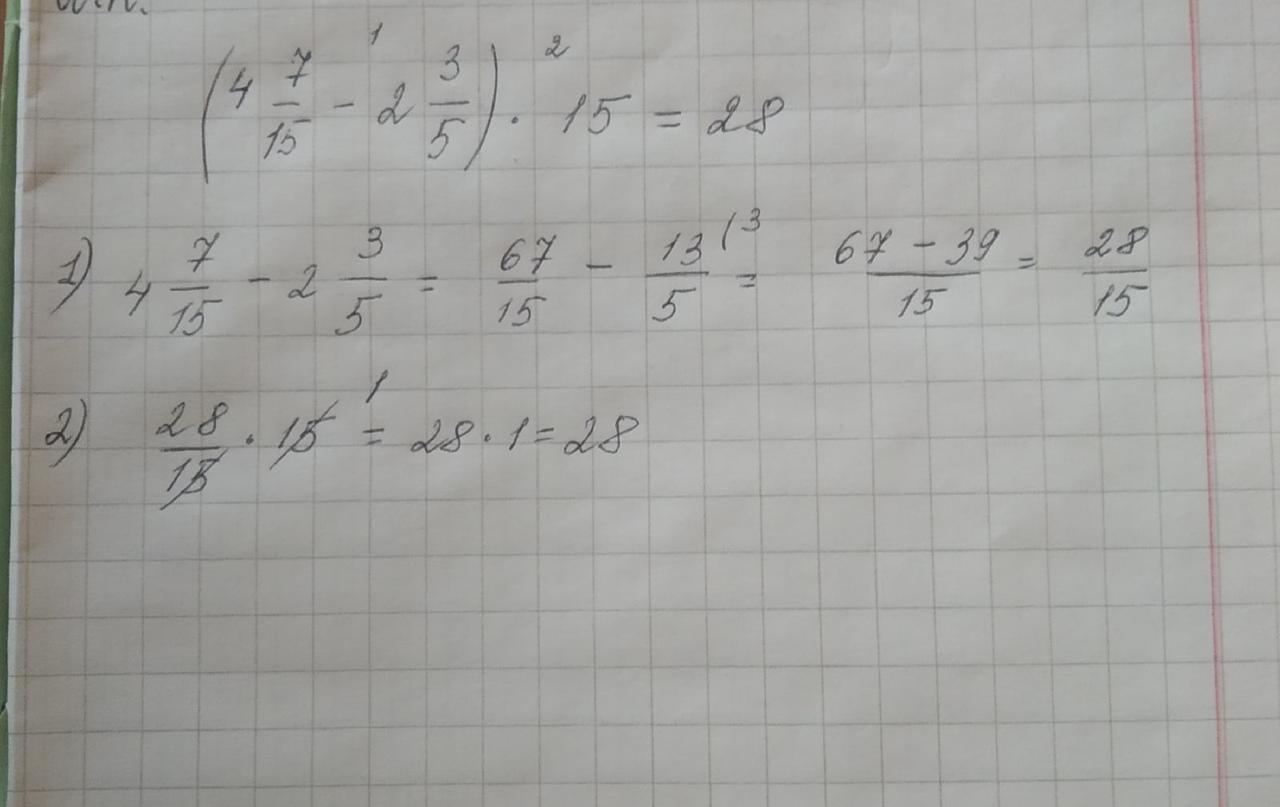 (4 7/15 - 2 3/5) · 15 = 28
1) 4 7/15 - 2 3/5 = 67/15 - 13/5 (3 = 67 - 39/15 = 28/15
2) 28/15 · 15 = 28 · 1 = 28